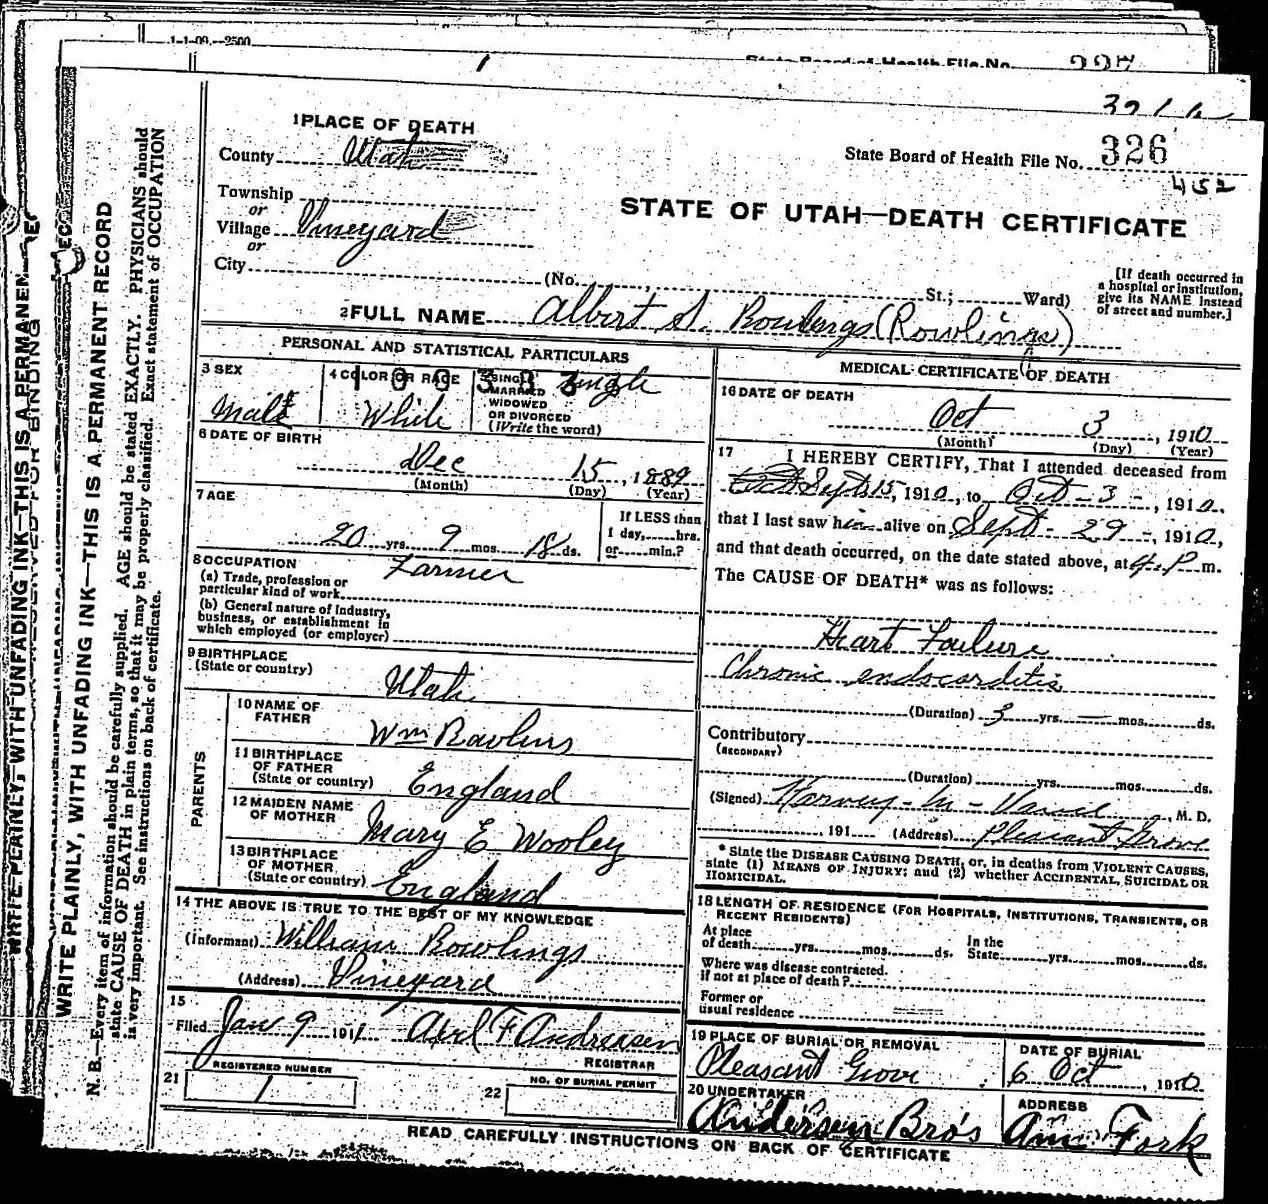 1-1-09—2500
State Board of Health File No. 327
326
1 PLACE OF DEATH
County Utah
State Board of Health File No. 326
452
Township
or
Village Vineyard
or
City
STATE OF UTAH—DEATH CERTIFICATE
(No. , St.; Ward)
[If death occurred in
a hospital or institution,
give its NAME instead
of street and number.]
2 FULL NAME Albert S. Rowlings (Rowlings)
PERSONAL AND STATISTICAL PARTICULARS
3 SEX
Male
4 COLOR OR RACE
White
SINGLE
MARRIED
WIDOWED
OR DIVORCED
(Write the word)
Single
6 DATE OF BIRTH
Dec 15, 1889
(Month) (Day) (Year)
7 AGE
20 yrs. 9 mos. 18 ds.
If LESS than
1 day,......hrs.
or......min.?
8 OCCUPATION
(a) Trade, profession or
particular kind of work Farmer
(b) General nature of industry,
business, or establishment in
which employed (or employer)
9 BIRTHPLACE
(State or country)
Utah
PARENTS
10 NAME OF
FATHER
Wm Rawlins
11 BIRTHPLACE
OF FATHER
(State or country)
England
12 MAIDEN NAME
OF MOTHER
Mary E Wooley
13 BIRTHPLACE
OF MOTHER
(State or country)
England
14 THE ABOVE IS TRUE TO THE BEST OF MY KNOWLEDGE
(Informant) William Rowlings
(Address) Vineyard
15
Filed Jan 9 1911 Abil F Andreasen
REGISTRAR
21 REGISTERED NUMBER
1
22 NO. OF BURIAL PERMIT
MEDICAL CERTIFICATE OF DEATH
16 DATE OF DEATH
Oct 3, 1910
(Month) (Day) (Year)
17 I HEREBY CERTIFY, That I attended deceased from
Sept 15, 1910, to Oct - 3 -, 1910.
that I last saw him alive on Sept - 29 -, 1910,
and that death occurred, on the date stated above, at 4. P. m.
The CAUSE OF DEATH* was as follows:
Heart Failure
Chronic endocarditis
(Duration) 3 yrs. — mos. ds.
Contributory
(SECONDARY)
(Duration) yrs. mos. ds.
(Signed) Harvey - M - Vance, M. D.
191 (Address) Pleasant Grove
* State the DISEASE CAUSING DEATH, or, in deaths from VIOLENT CAUSES,
state (1) MEANS OF INJURY; and (2) whether ACCIDENTAL, SUICIDAL OR
HOMICIDAL.
18 LENGTH OF RESIDENCE (FOR HOSPITALS, INSTITUTIONS, TRANSIENTS, OR
RECENT RESIDENTS)
At place
of death yrs. mos. ds.
In the
State yrs. mos. ds.
Where was disease contracted.
if not at place of death?
Former or
usual residence
19 PLACE OF BURIAL OR REMOVAL
Pleasant Grove
DATE OF BURIAL
6 Oct, 1910
20 UNDERTAKER
Andersen Bro's
ADDRESS
Am Fork
READ CAREFULLY INSTRUCTIONS ON BACK OF CERTIFICATE
WRITE PLAINLY, WITH UNFADING INK—THIS IS A PERMANENT RECORD
N. B.—Every item of information should be carefully supplied. AGE should be stated EXACTLY. PHYSICIANS should
state CAUSE OF DEATH in plain terms, so that it may be properly classified. Exact statement of OCCUPATION
is very important. See instructions on back of certificate.
WRITE PLAINLY, WITH UNFADING INK—THIS IS A PERMANE